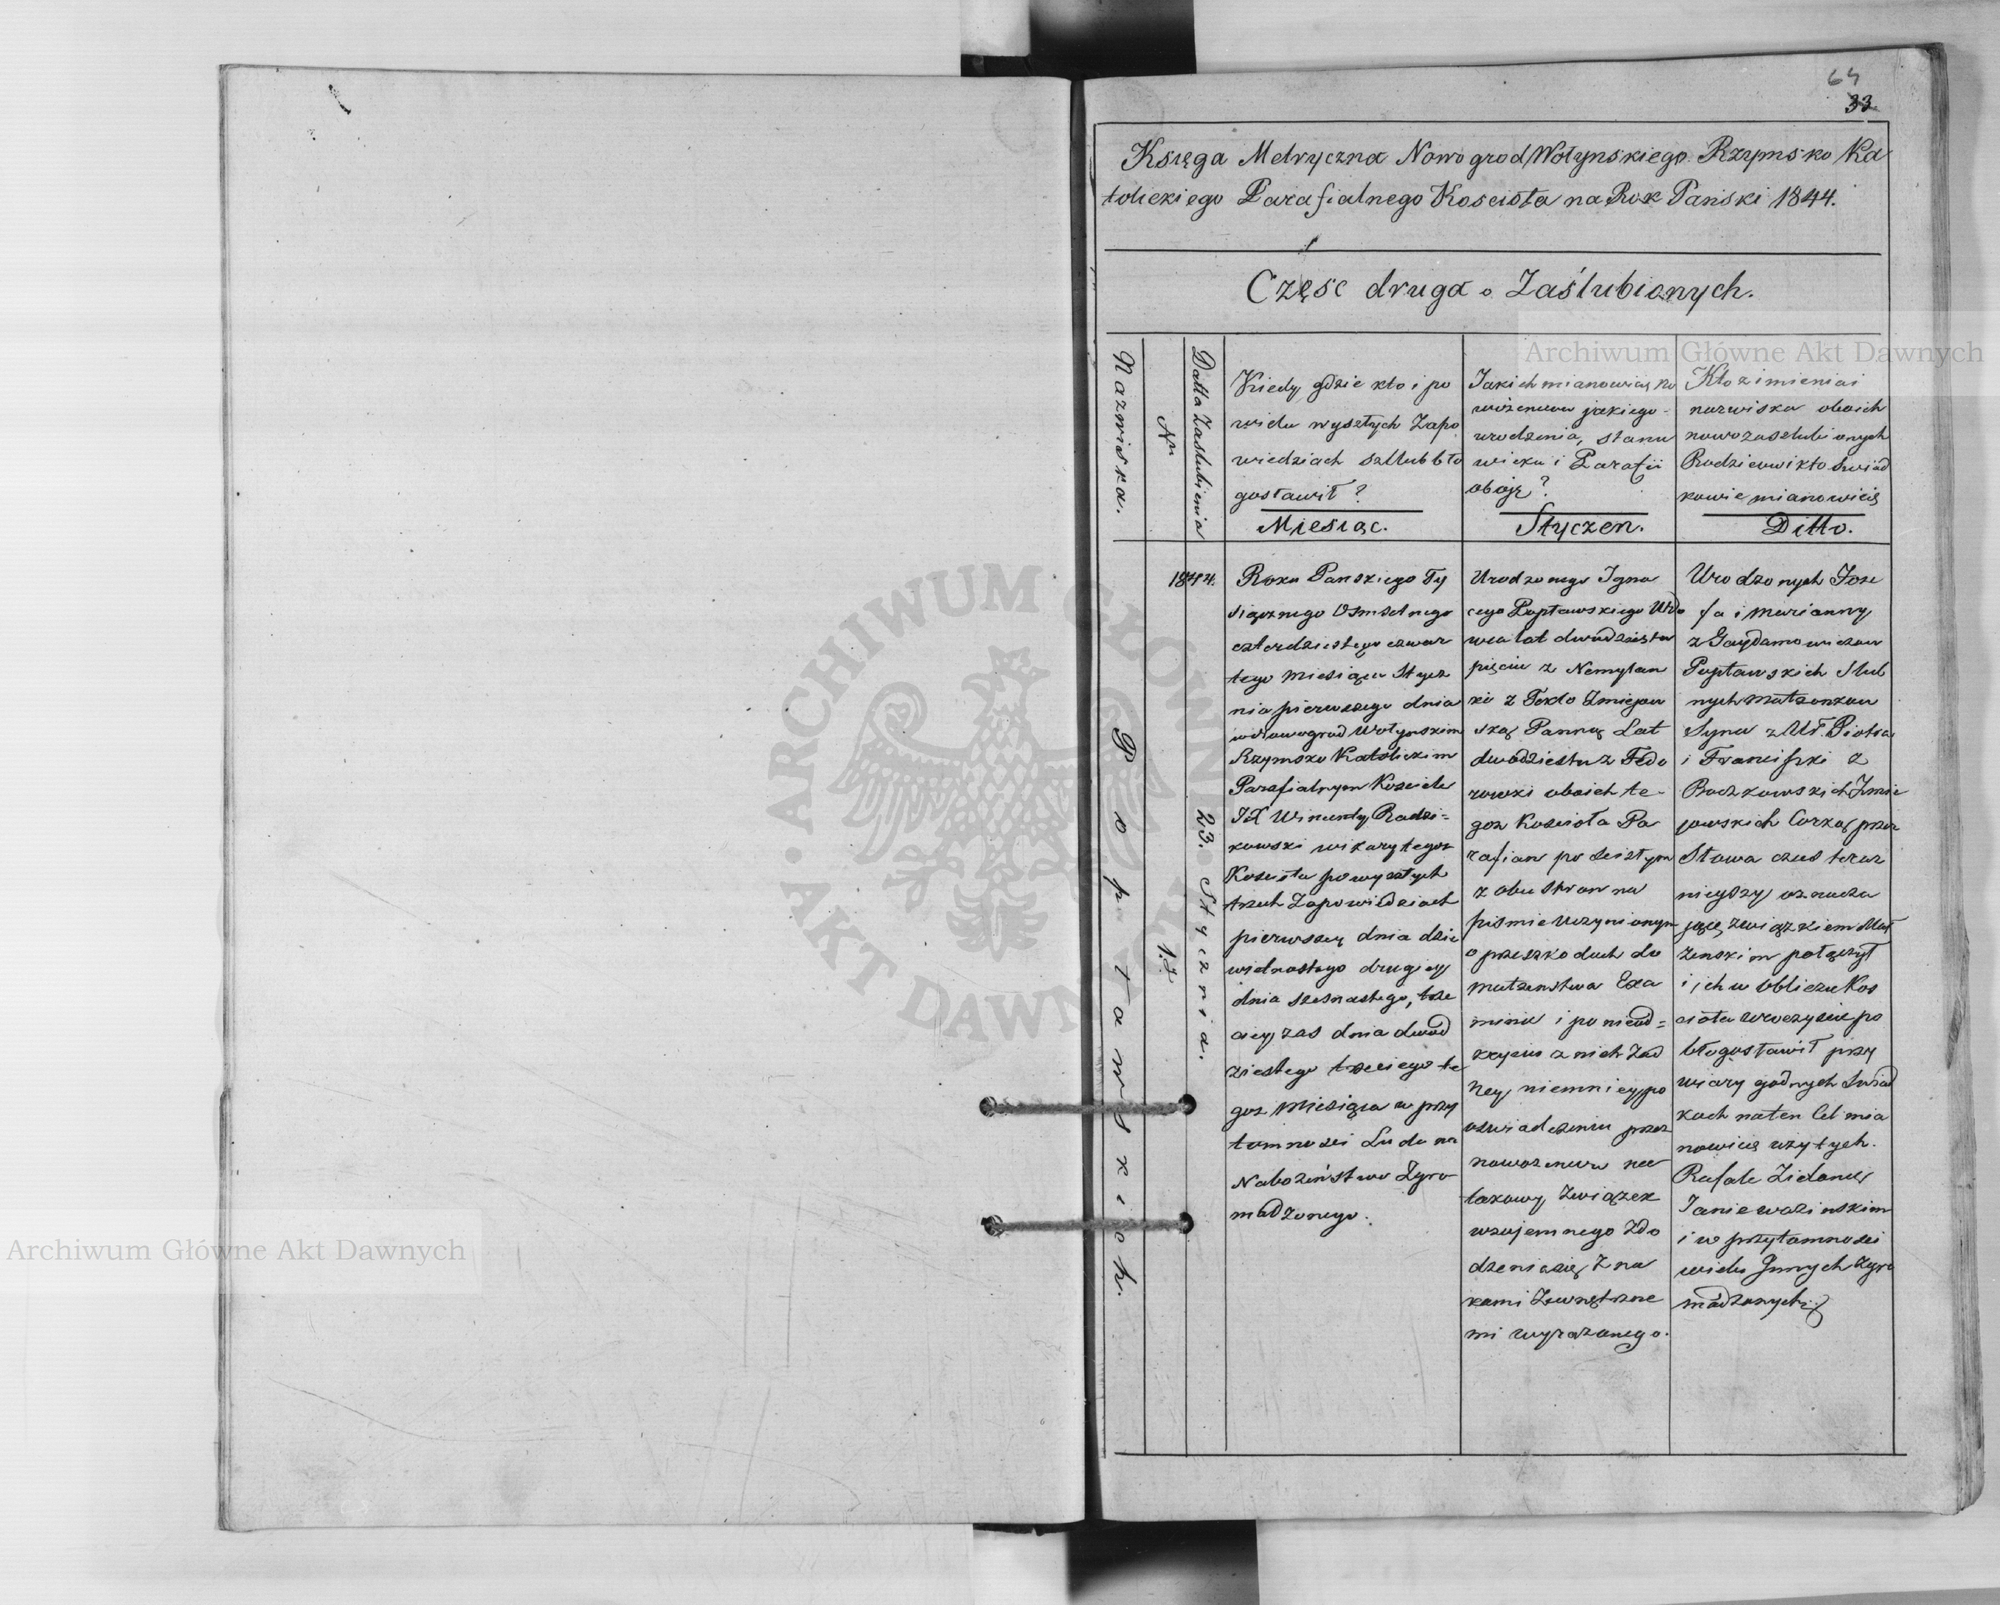 64
33.
Księga Metryczna Nowogrod Wołynskiego Rzymsko Ka
tolickiego Parafialnego Kościoła na Rok Pański 1844.
Część druga o Zaślubionych.
Nazwiska.
Nr
Datta Zaslubienia
Kiedy, gdzie kto i po
wielu wyszłych Zapo
wiedziach szllub bło
gosławił?
Miesiąc.
Jakich mianowicię no
wożenców jakiego
urodzenia, stanu
wieku i Parafii
oboję?
Styczen.
Kto z imienia i
nazwiska oboich
nowozaslubionych
Rodzicow i kto swiad
kowie mianowicię
Ditto.
Popławskich.
1. I.
1844.
23. Stycznia.
Roku Panskiego Ty
siącznego Osmsetnego
czterdziestego czwar
tego Miesiąca Stycz
nia pierwszego dnia
w Nowogrod Wołynskim
Rzymsko Katolickim
Parafialnym Kosciele
JX Wincenty Radzi=
kowski wikary tegoz
Kosciola po wyszłych
trzech Zapowiedziach
pierwszey dnia dzie
widnastego drugiey
dnia szesnastego, trze
ciey zas dnia dwud
ziestego trzeciego te
goz Miesiąca w przy
tomnosci Ludu na
Nabożeństwo Zgro
madzonego.
Urodzonego Igna
cego Popławskiego Wdo
wca lat dwudziestu
pięciu z Nemylan
ki z Teklo Zmiejow
ską Panną Lat
dwadziestu z Fedo
rowki oboich te-
goz Kosciola Pa
rafian po scisłym
z obu stron na
pismie uczynionym
o przeszkodach do
małzenstwa Exa
minie i po nieod=
kryciu z nich żad
ney, niemniey po
oswiadczeniu przez
nowożencow na
takowy Związek
wzajemnego Zdo
dzenia się Zna
kami Zewnętrzne
mi wyrazonego.
Urodzonych Joze
fa i Marianny
z Gaydamowiczow
Popławskich Slub
nych małzonkow
Syna z Ur. Piotra
i Franciszki z
Boczkowskich Zmie
jowskich Corką przez
Słowa czas teraz
nieyszy oznacza
jące, związkiem Mał
żenskim połączył
i ich w Obliczu Kos
cioła uroczyscie po
błogosławił przy
wiary godnych Swiad
kach na ten Cel mia
nowicię użytych.
Rafale Zielonce
Janie
i w przytomnosci
wielu Innych Zgro
madzonych.
ARCHIWUM GŁÓWNE AKT DAWNYCH
Archiwum Główne Akt Dawnych
Archiwum Główne Akt Dawnych